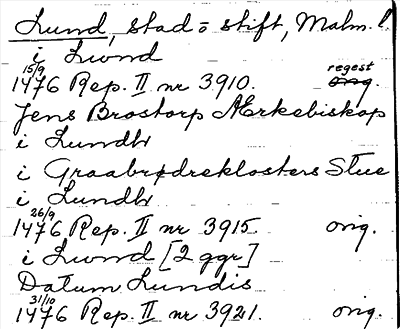 Lund, stad o stift, Malm. l.
i Lwnd
15/9 regest
1476 Rep. II nr 3910. orig.
Jens Brostorp Ærkebiskop
i Lundh
i Graabrødreklosters Stue
i Lundh
26/9
1476 Rep. II nr 3915. orig.
i Lwnd [2 ggr]
Datum Lundis
31/10
1476 Rep. II nr 3921. orig.